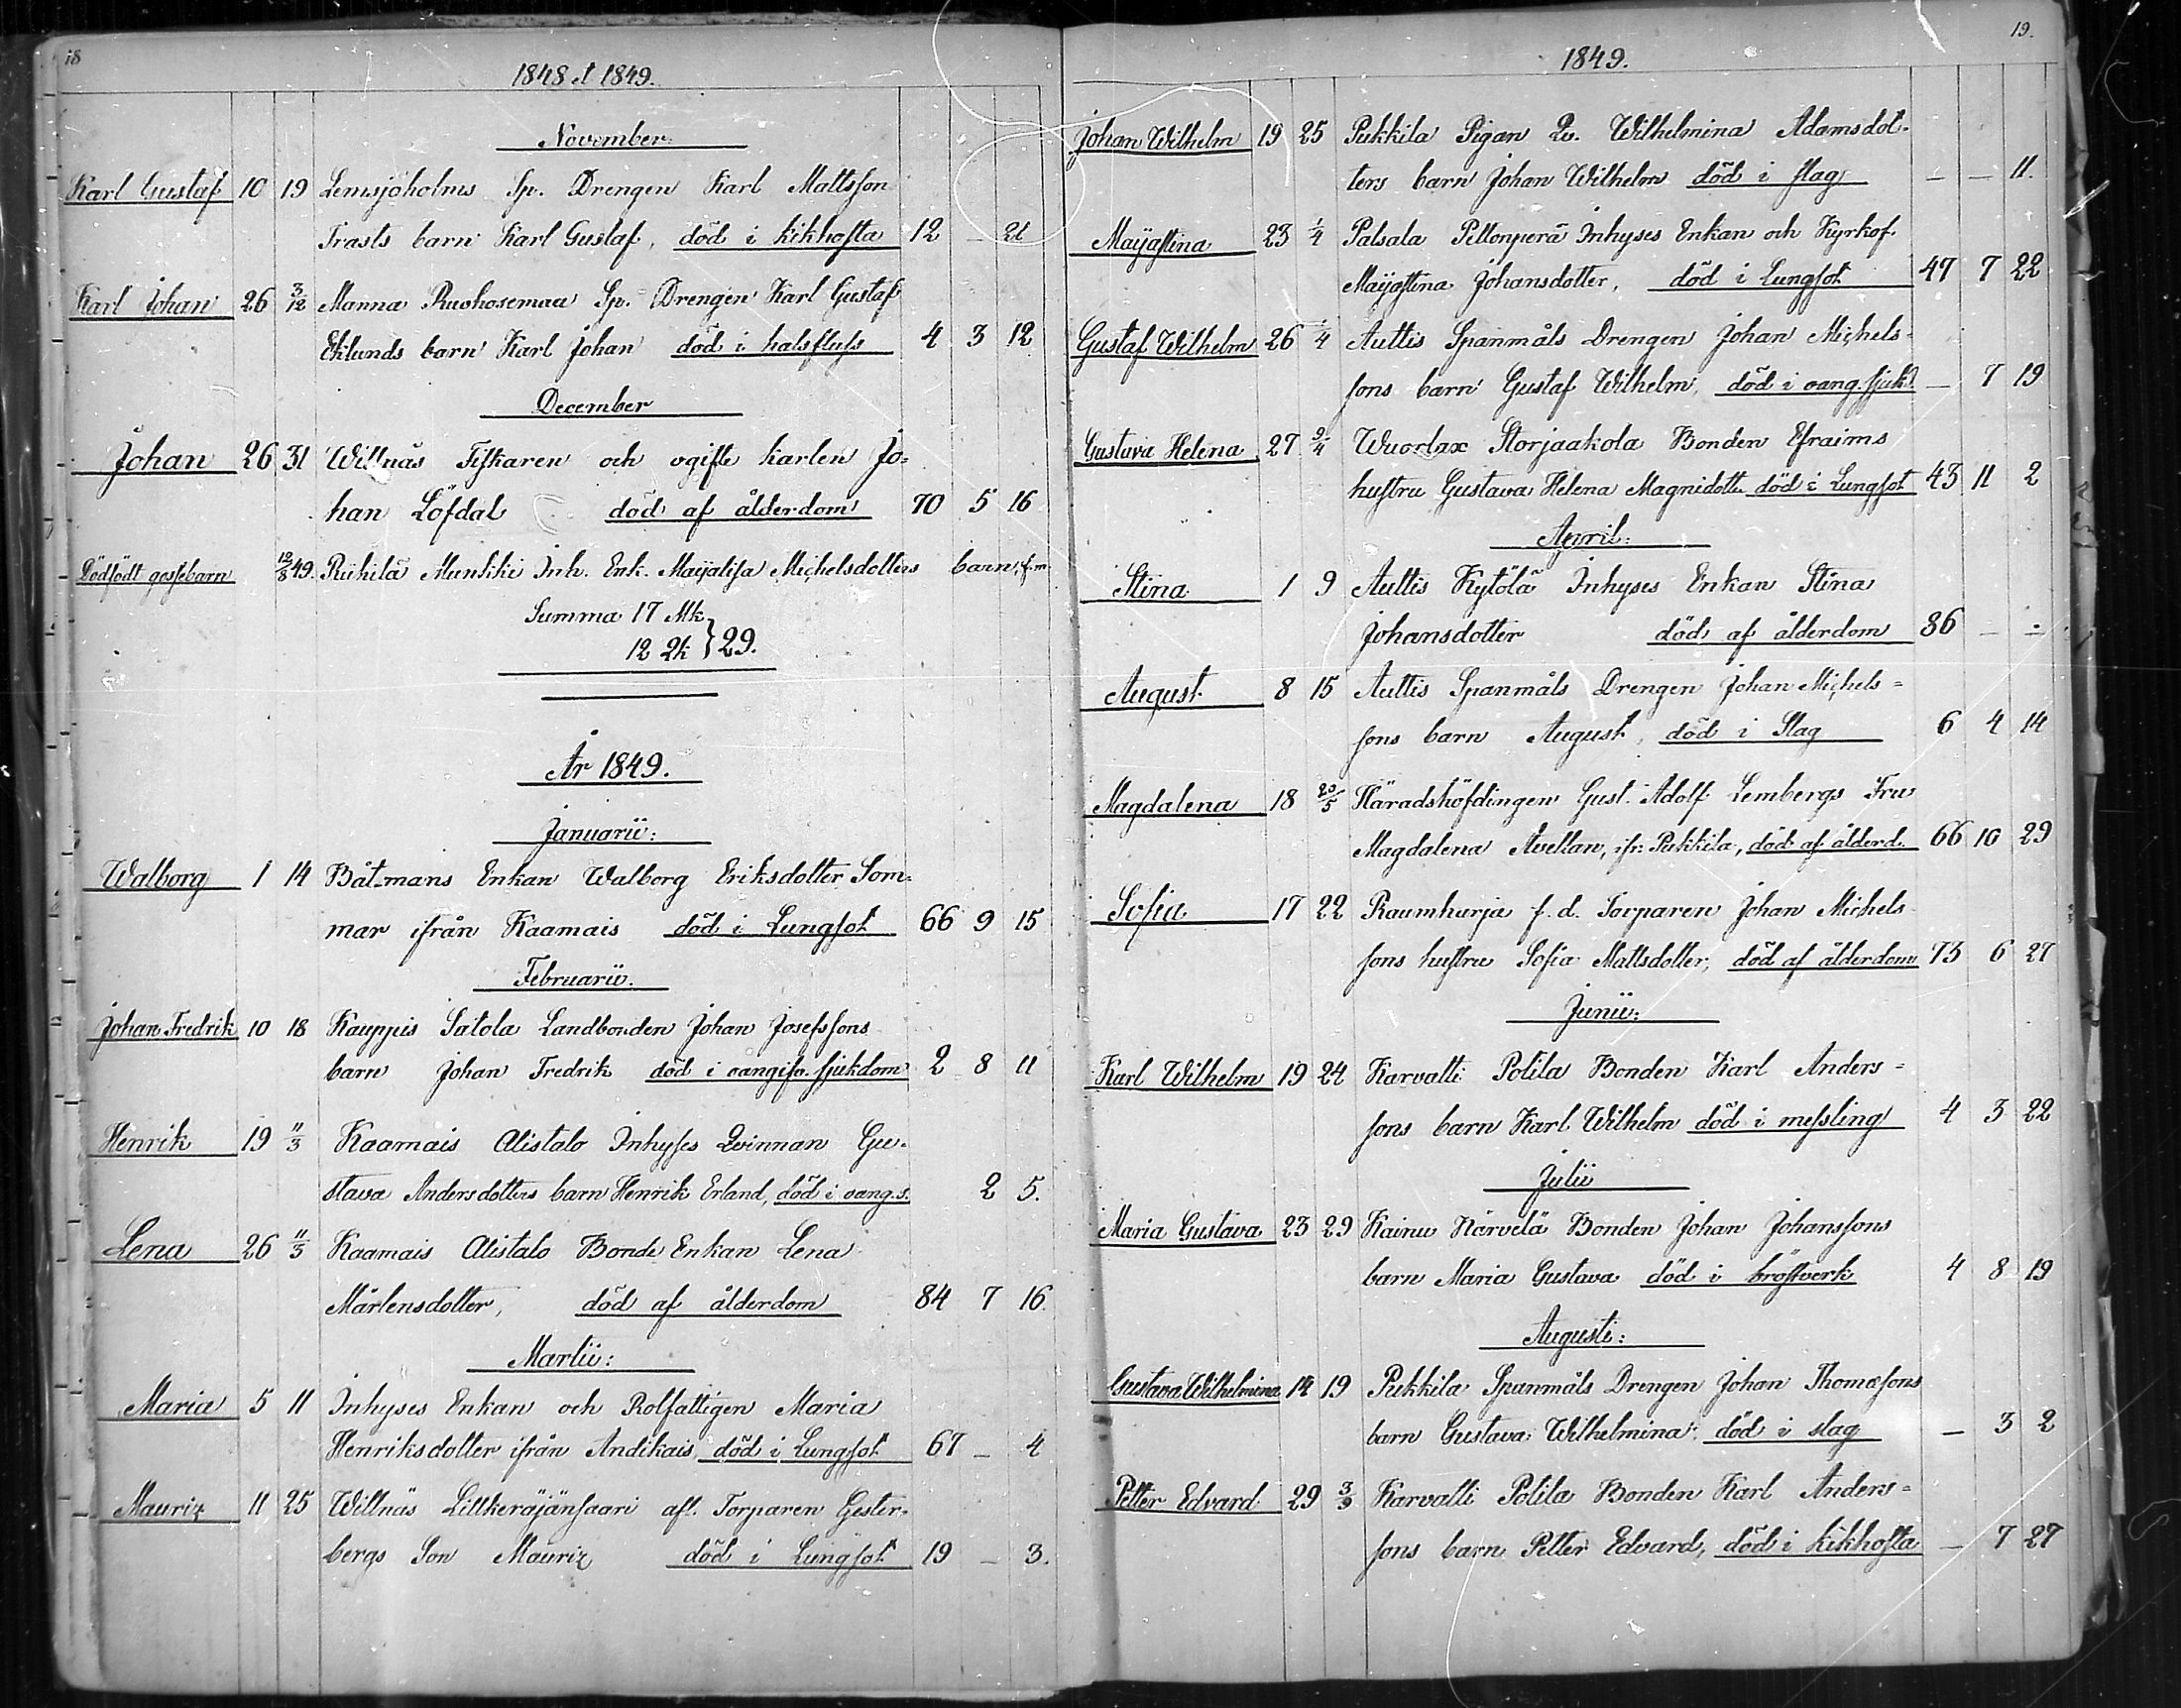 18
1848 et 1849.
November.
Karl Gustaf 10 19 Lemsjöholms Sp. Drengen Karl Mattsson
Trasts barn Karl Gustaf, död i kikhosta 12 – 21
Karl Johan 26 3/12 Manna Ruohosemaa Sp. Drengen Karl Gustaf
Eklunds barn Karl Johan död i halsfluss 4 3 12
December
Johan 26 31 Willnäs Fiskaren och ogifte karlen Jo=
han Löfdal död af ålderdom 70 5 16
Dödfödt gossebarn 12/8 49. Riihilä Munkiki Inh. Enk. Maijalisa Michelsdotters barn, f.m.
Summa 17 Mk
12 Qk } 29.
År 1849.
Januarii:
Walborg 1 14 Båtsmans Enkan Walborg Eriksdotter Som=
mar ifrån Kaamais död i Lungsot 66 9 15
Februarii.
Johan Fredrik 10 18 Kauppis Satola Landbonden Johan Josefssons
barn Johan Fredrik död i oangifv. sjukdom 2 8 11
Henrik 19 11/3 Kaamais Alistalo Inhyses Qvinnan Gu=
stava Andersdotters barn Henrik Erland, död i oang.s. 2 5.
Lena 26 11/3 Kaamais Alistalo Bonde Enkan Lena
Mårtensdotter, död af ålderdom 84 7 16.
Martii:
Maria 5 11 Inhyses Enkan och Rotfattigen Maria
Henriksdotter ifrån Andikais, död i Lungsot 67 – 4
Mauriz 11 25 Willnäs afl. Torparen Gester=
bergs Son Mauriz död i Lungsot 19 – 3.
19.
1849.
Johan Wilhelm 19 25 Pukkila Pigan Qv. Wilhelmina Adamsdot=
ters barn Johan Wilhelm död i slag – – 11.
Maijastina 23 1/4 Palsala Peltonperä Inhyses Enkan och Kyrkof.
Maijastina Johansdotter, död i Lungsot 47 7 22
Gustaf Wilhelm 26 1/4 Auttis Spanmåls Drengen Johan Michels=
sons barn Gustaf Wilhelm, död i oang. sjukd. – 7 19
Gustava Helena 27 9/4 Wuorlax Storjaakola Bonden Efraims
hustru Gustava Helena Magnidotter död i Lungsot 43 11 2
April:
Stina 1 9 Auttis Kytölä Inhyses Enkan Stina
Johansdotter död af ålderdom 86 – –
August 8 15 Auttis Spanmåls Drengen Johan Michels=
sons barn August, död i Slag 6 4 14
Magdalena 18 20/5 Häradshöfdingen Gust. Adolf Lembergs Fru
Magdalena Avellan, ifr. Pukkila, död af ålderd. 66 10 29
Sofia 17 22 Raumhurja f.d. Torparen Johan Michels
sons hustru Sofia Mattsdotter, död af ålderdom 73 6 27
Junii:
Karl Wilhelm 19 24 Karvatti Polila Bonden Karl Anders=
sons barn Karl Wilhelm död i messling 4 3 22
Julii
Maria Gustava 23 29 Kainu Härvelä Bonden Johan Johanssons
barn Maria Gustava död i bröstverk 4 8 19
Augusti:
Gustava Wilhelmina 14 19 Pukkila Spanmåls Drengen Johan Thomæsons
barn Gustava Wilhelmina död i slag – 3 2
Petter Edvard 29 3/9 Karvatti Polila Bonden Karl Anders=
sons barn Petter Edvard, död i kikhosta – 7 27